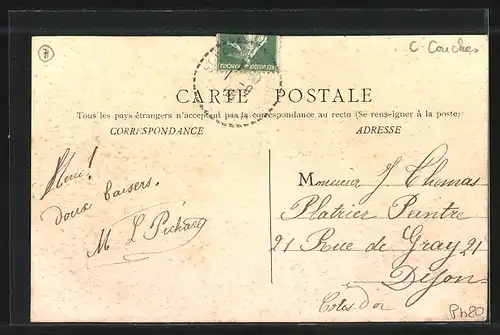 C. Couches
REPUBLIQUE FRANÇAISE
CARTE POSTALE
Tous les pays étrangers n'acceptent pas la correspondance au recto (Se renseigner à la poste)
CORRESPONDANCE
ADRESSE
doux baisers.
M L Pichard
Monsieur J Thomas
Platrier Peintre
21 Rue de Gray 21
Dijon
Côte d'or
Ph80